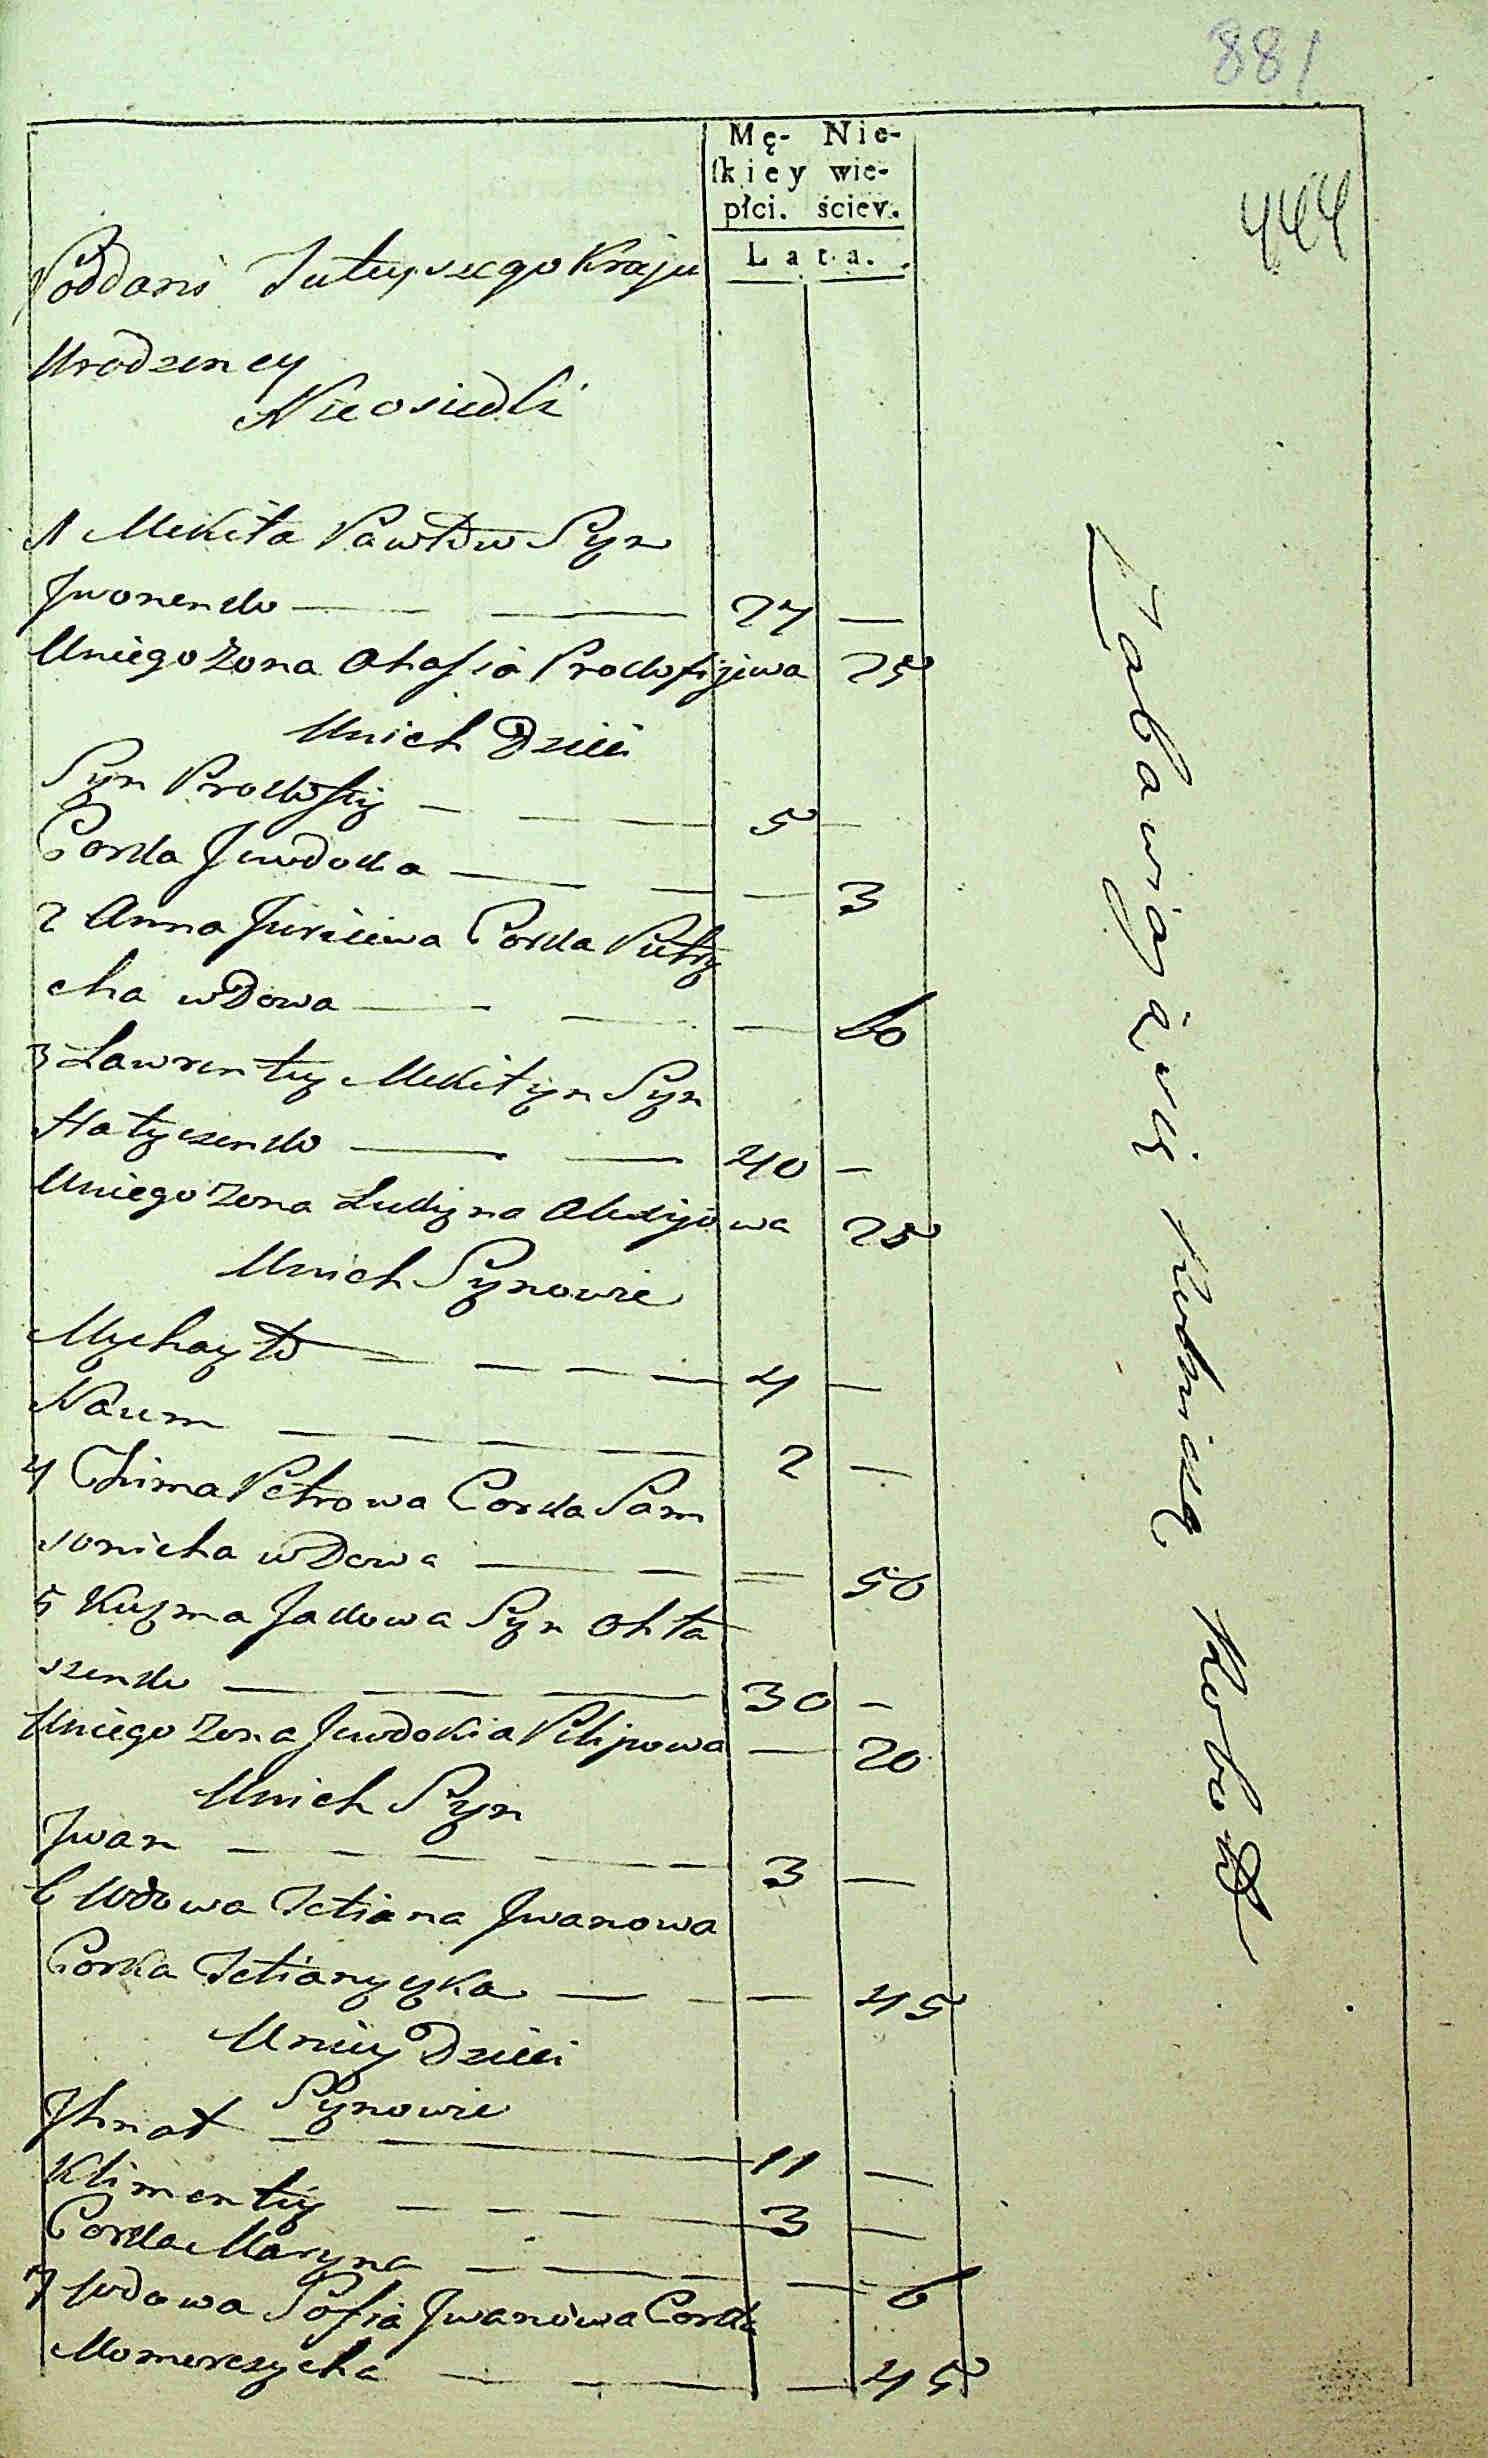 881
444
Mę- Nie-
skiey wie-
płci. ściey.
Lata.
Poddani Tuteyszego Kraju
Urodzency
Nieosiedli
1 Mekita Pawłow Syn
Iwonenko — — 27 —
Uniego Zona Ahafia Prokofijewa 25
Unich Dzieci
Syn Prokofiy — — 5 —
Corka Jewdoka — — — 3
2 Anna Jurziewa Corka
cha wDowa — — — 60
3 Lawrentiy Mekityn Syn
Hatyczenko — — 40 —
Uniego Zona Lukiyna Alexijowa 25
Unich Synowie
Mychayło — — — — 4 —
Naum — — — — — 2 —
4 Chima Petrowa Corka Sam
sonicha wDowa — — — 50
5 Kuzma Jakowa Syn Ohła
szenko — — — 30 —
Uniego Zona Jewdokia Pilipowa — 20
Unich Syn
Jwan — — — — — 3 —
6 Wdowa Tetiana Jwanowa
Corka Tetianyzka — — — 45
Uniey Dzieci
Synowie
Jhnat — — 11 —
Klimentiy — — — — 3 —
Corka Maryna — — — — 6
7 Wdowa Sofia Jwanowa Corka
Momerczycha — — — 45
Zabawiaiącsię Rudnicką Robotą